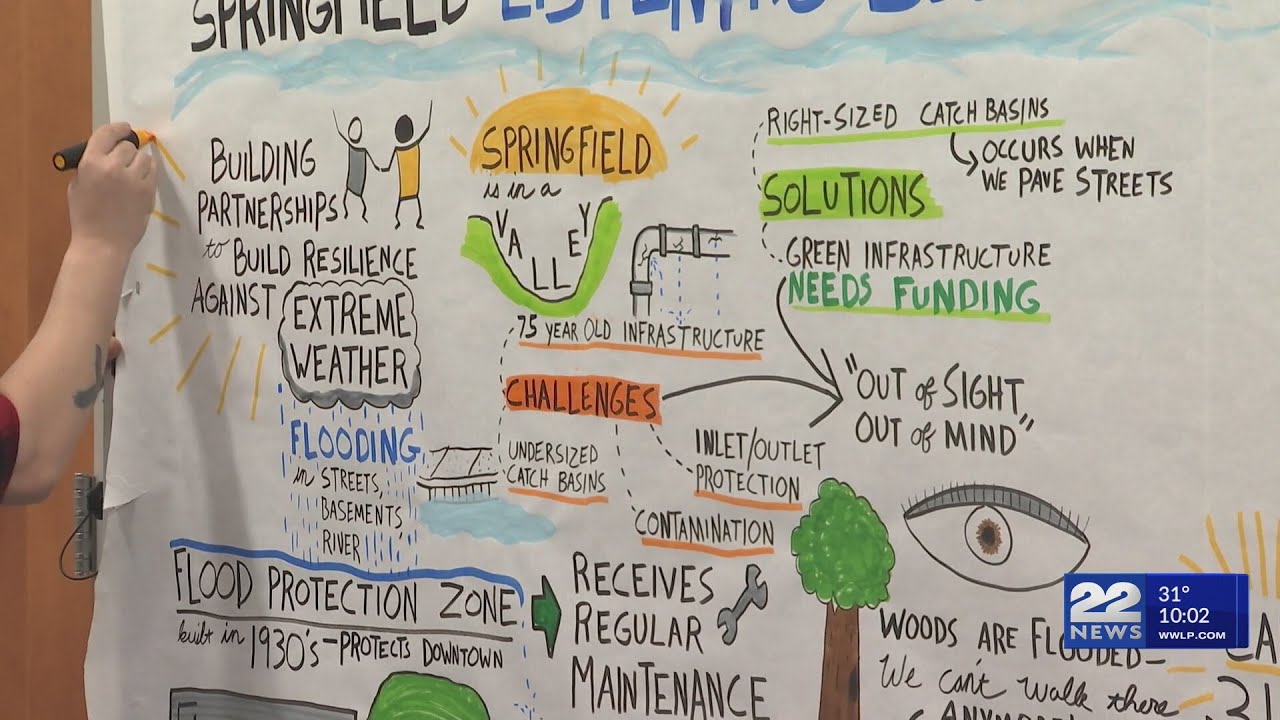 SPRINGFIELD LISTENING
BUILDING
PARTNERSHIPS
to BUILD RESILIENCE
AGAINST
EXTREME
WEATHER
FLOODING
in STREETS,
BASEMENTS,
RIVER
SPRINGFIELD
is in a
VALLEY
75 YEAR OLD INFRASTRUCTURE
CHALLENGES
UNDERSIZED
CATCH BASINS
INLET/OUTLET
PROTECTION
CONTAMINATION
RIGHT-SIZED CATCH BASINS
OCCURS WHEN
WE PAVE STREETS
SOLUTIONS
GREEN INFRASTRUCTURE
NEEDS FUNDING
"OUT of SIGHT,
OUT of MIND"
FLOOD PROTECTION ZONE
built in 1930's-PROTECTS DOWNTOWN
RECEIVES
REGULAR
MAINTENANCE
WOODS ARE FLOODED-
We can't walk there
ANYMORE
22
NEWS
31°
10:02
WWLP.COM